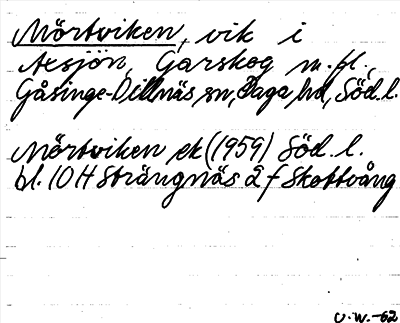 Mörtviken, vik i
Axsjön, Garskog m.fl.,
Gåsinge-Dillnäs sn, Daga hd, Söd.l.
Mörtviken ek (1959) Söd.l.
bl. 10H Strängnäs 2 f Skottvång
O.W.-62